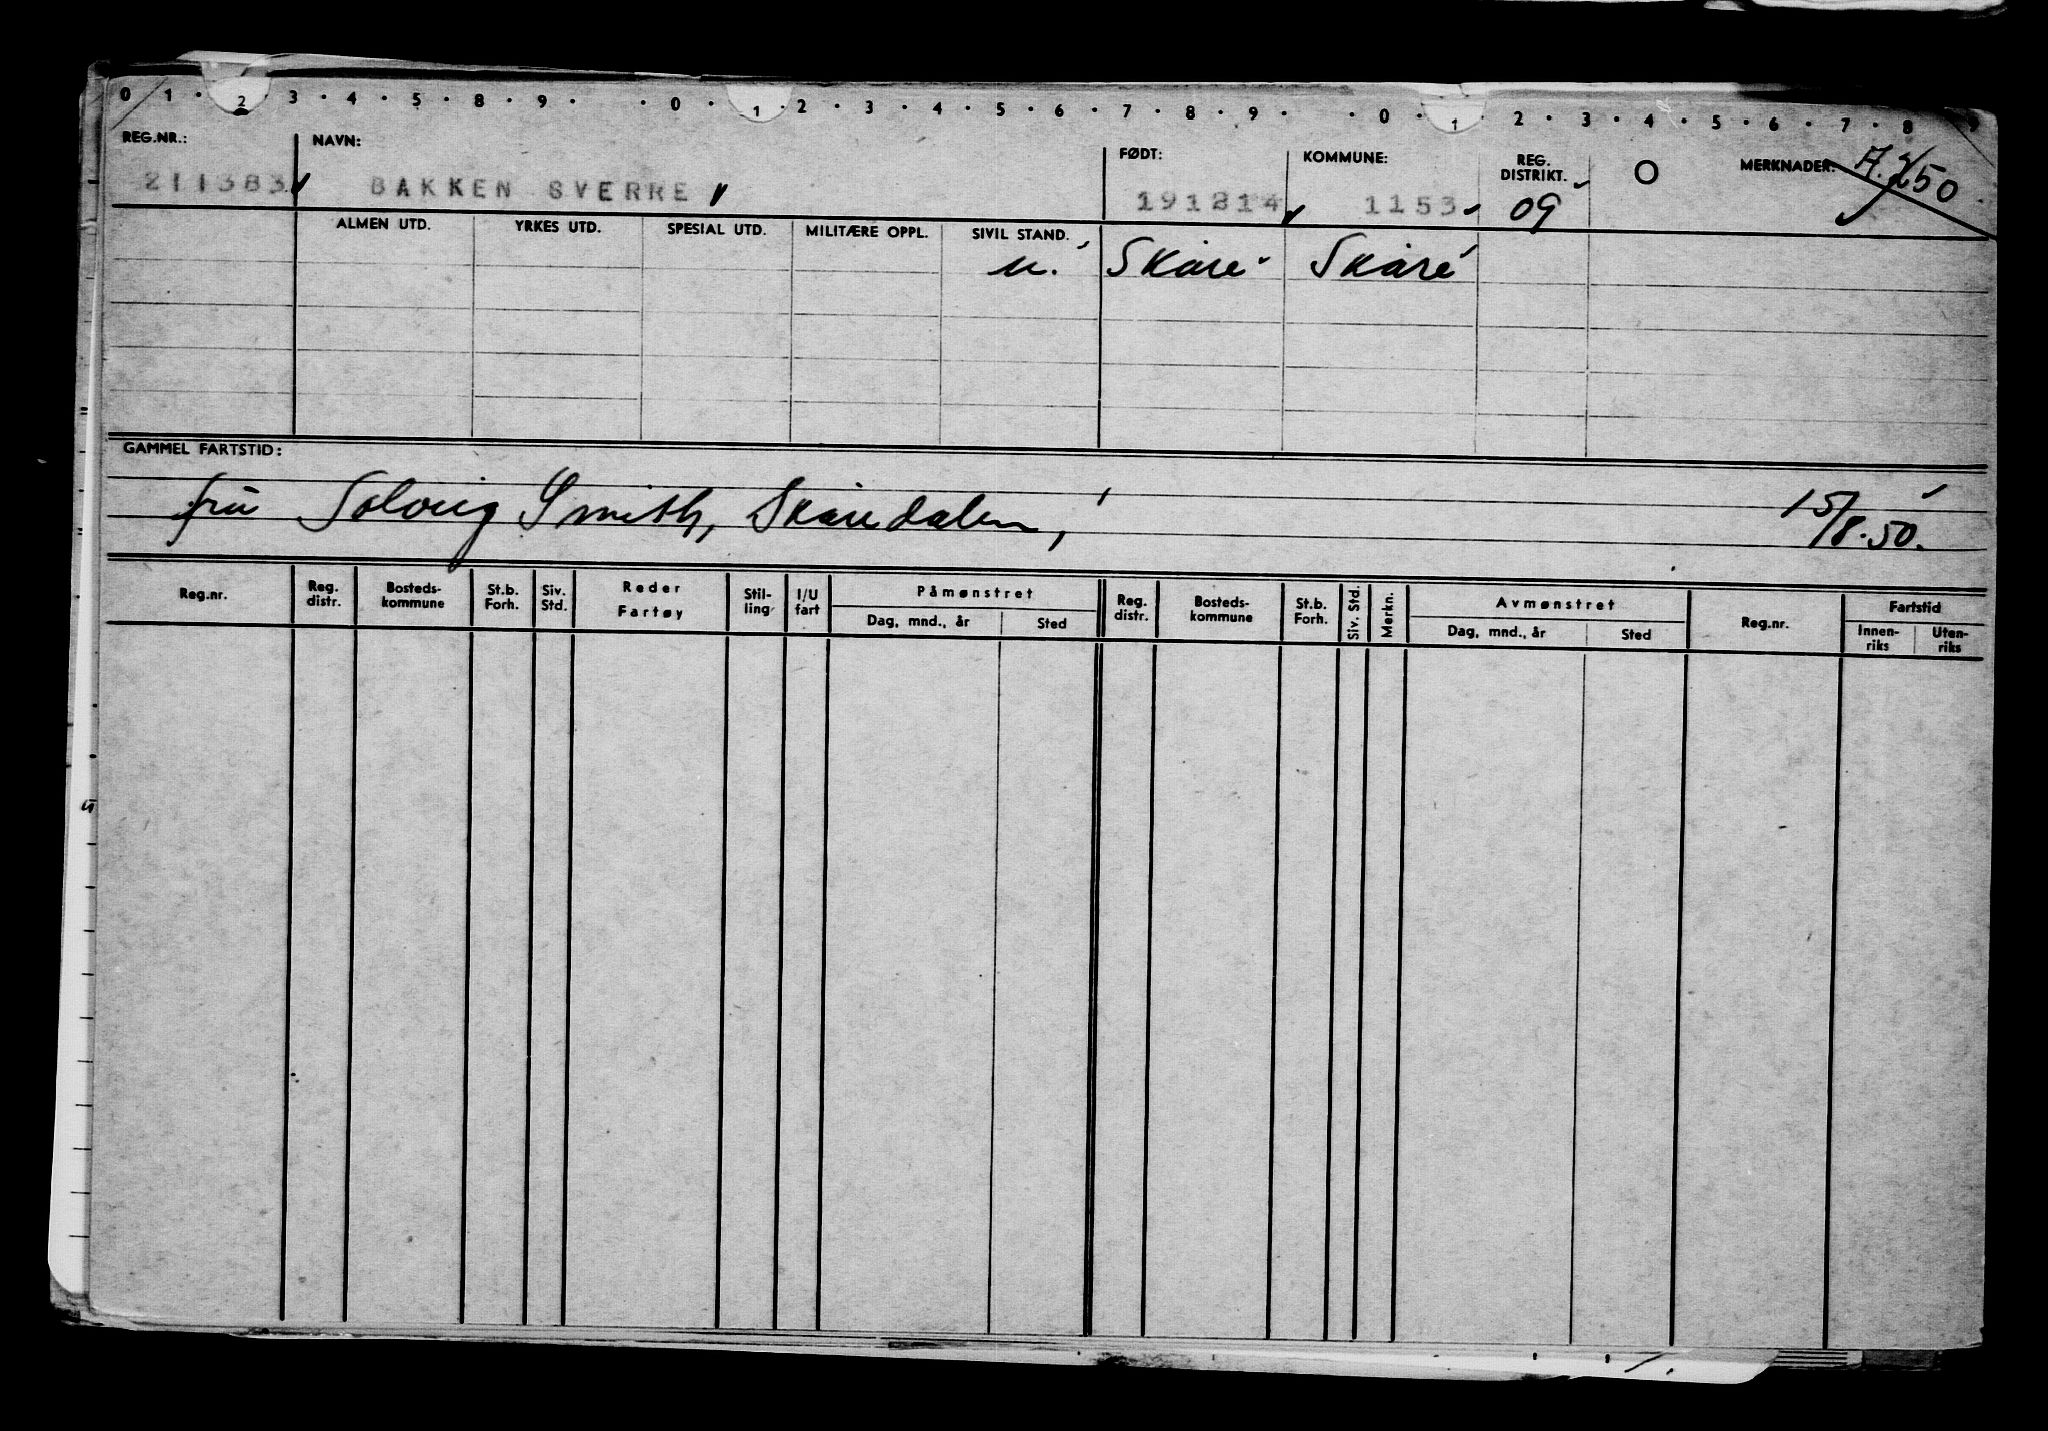 0 1 · 2 · 3 · 4 · 5 · 8 · 9 · · 0 · 1 · 2 · 3 · 4 · 5 · 6 · 7 · 8 · 9 · · 0 · 1 · 2 · 3 · 4 · 5 · 6 · 7 · 8 9
REG.NR.: NAVN: FØDT: KOMMUNE: REG. DISTRIKT. O MERKNADER:
211383 BAKKEN SVERRE 191214 1153 09
ALMEN UTD. YRKES UTD. SPESIAL UTD. MILITÆRE OPPL. SIVIL STAND.
u. Skåre Skåre
GAMMEL FARTSTID:
fru Solveig Smith, Skåredalen, 15/8.50.
Reg.nr. Reg. distr. Bosteds-kommune St.b. Forh. Siv. Std. Reder Fartøy Stil-ling I/U fart Påmønstret Reg. distr. Bosteds-kommune St.b. Forh. Siv. Std. Merkn. Avmønstret Reg.nr. Fartstid
Dag, mnd., år Sted Dag, mnd., år Sted Innen-riks Uten-riks